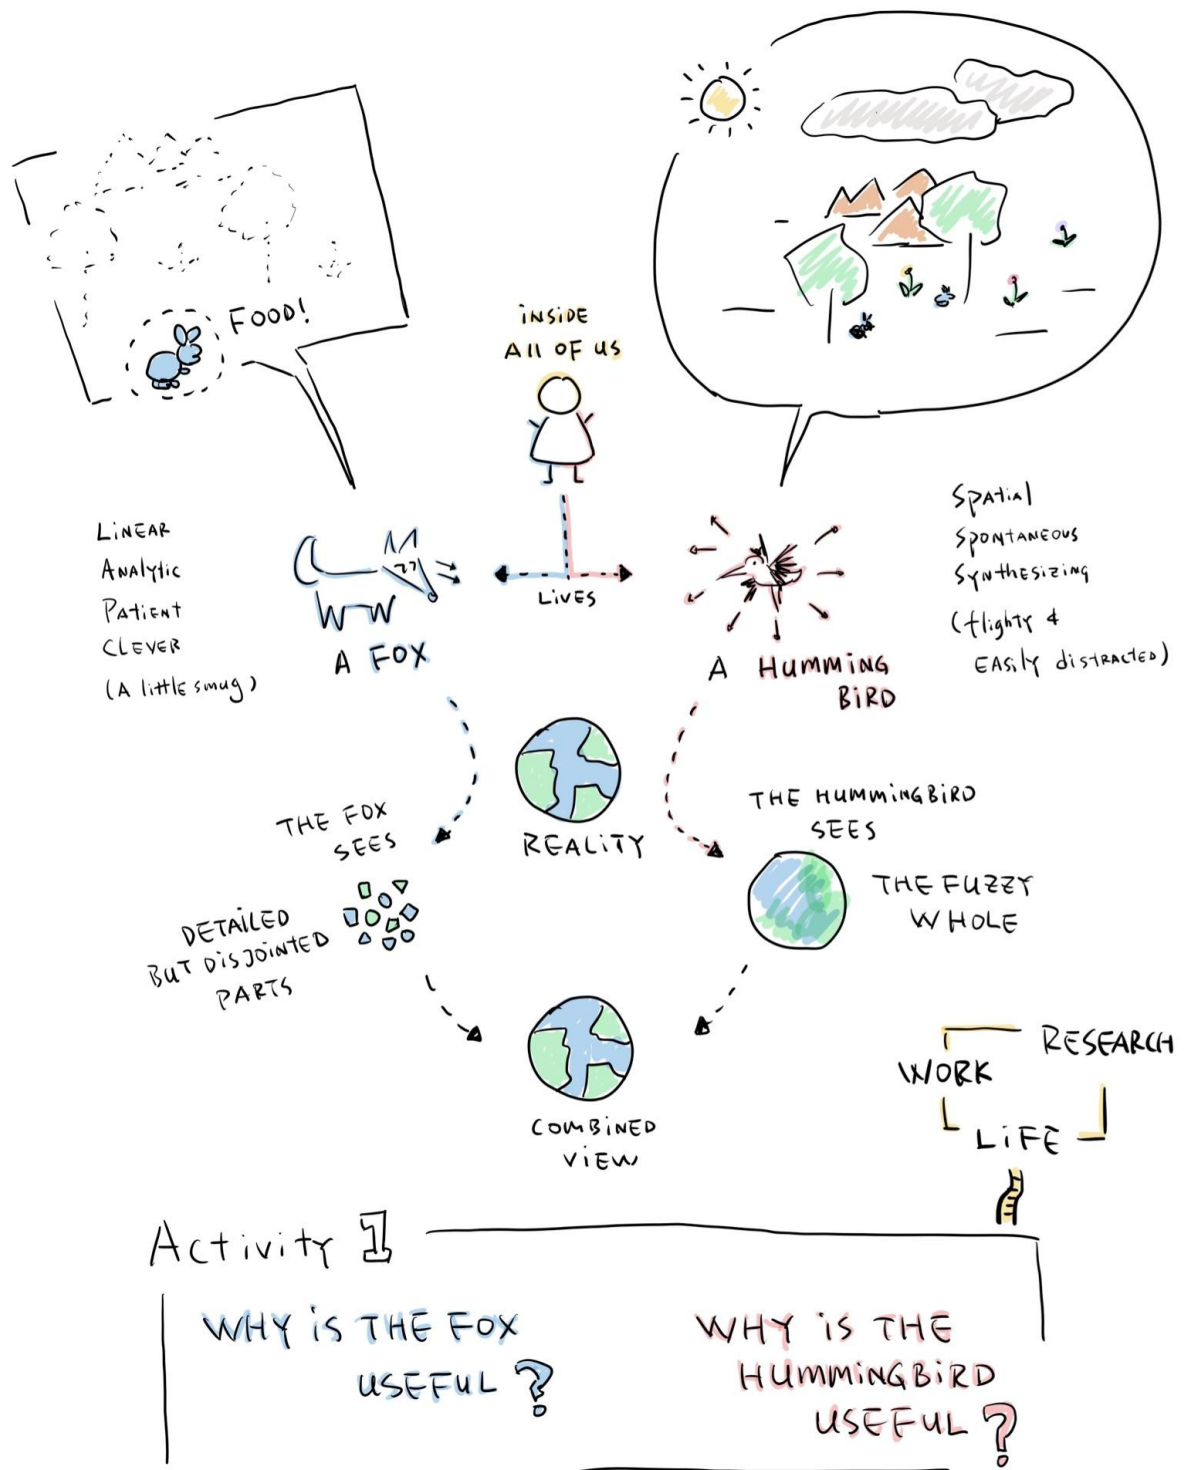 FOOD!
INSIDE
All OF US
LINEAR
ANAlytic
PATIENT
CLEVER
(A little smug)
A FOX
LIVES
A HUMMING
BIRD
SPATIAl
SPONTANEOUS
SYNTHESIZING
(flighty &
EASily distRACTED)
THE FOX
SEES
DETAILED
BUT DISJOINTED
PARTS
REALITY
THE HUMMINGBIRD
SEES
THE FUZZY
WHOLE
COMBINED
VIEW
RESEARCH
WORK
LIFE
Activity 1
WHY IS THE FOX
USEFUL?
WHY IS THE
HUMMINGBIRD
USEFUL?